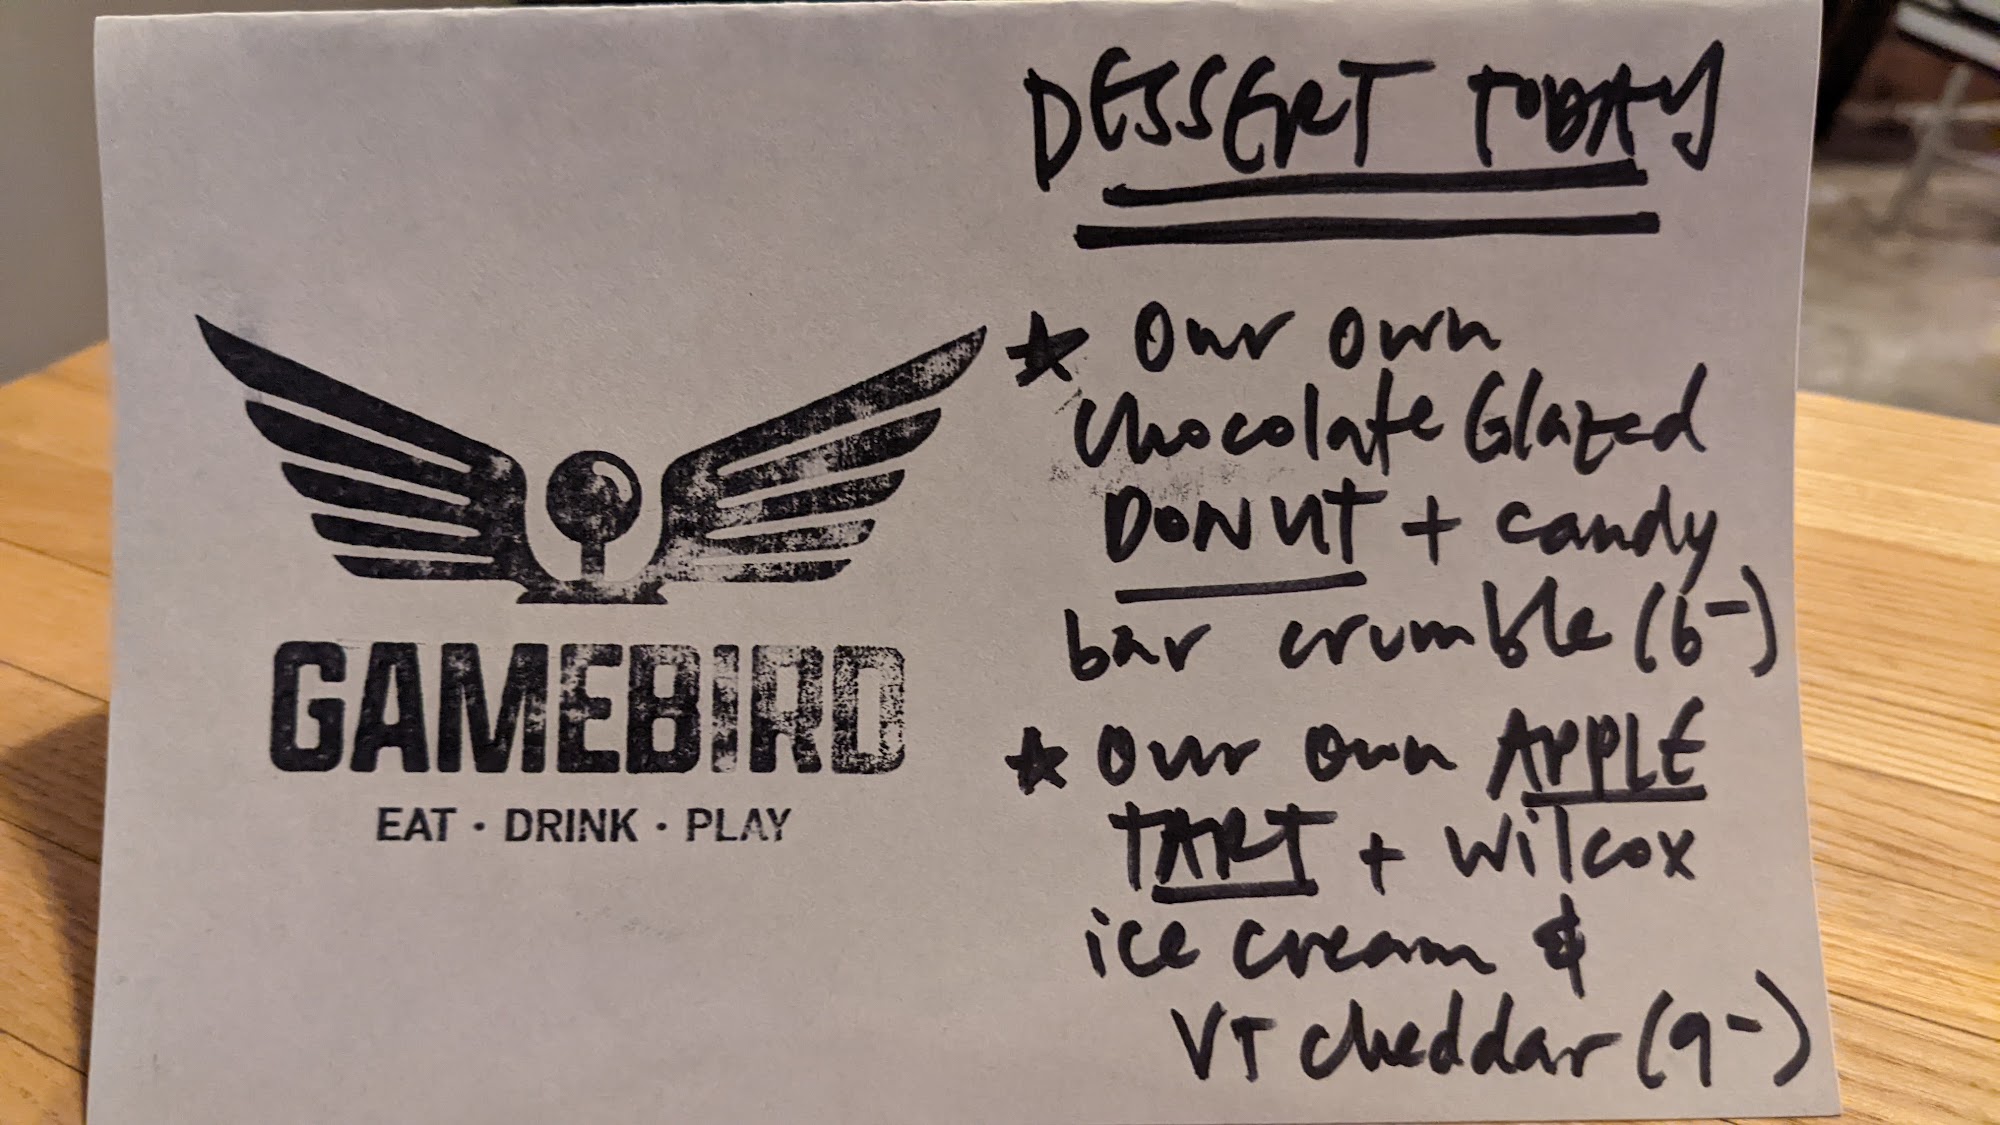 GAMEBIRD
EAT · DRINK · PLAY
DESSERT TODAY
★ Our own
Chocolate Glazed
DONUT + candy
bar crumble (6-)
★ Our own APPLE
TART + Wilcox
ice cream &
VT Cheddar (9-)